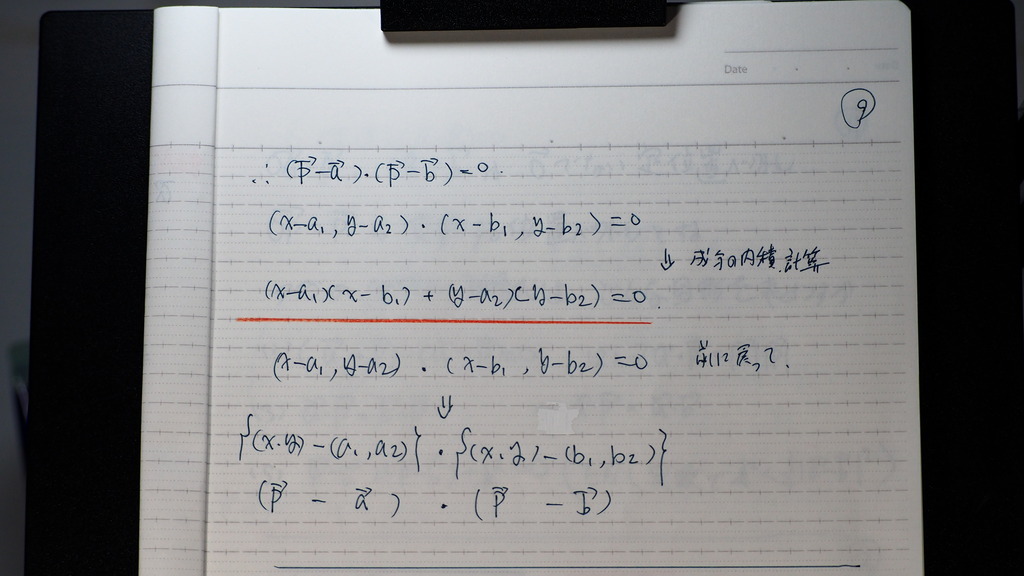 Date
9
∴ (p⃗-a⃗)・(p⃗-b⃗)=0.
(x-a₁, y-a₂)・(x-b₁, y-b₂)=0
⇓ 成分の内積計算
(x-a₁)(x-b₁) + (y-a₂)(y-b₂)=0.
(x-a₁, y-a₂)・(x-b₁, y-b₂)=0 前に戻って.
⇓
{(x.y)-(a₁,a₂)}・{(x,y)-(b₁,b₂)}
(p⃗ - a⃗)・(p⃗ - b⃗)